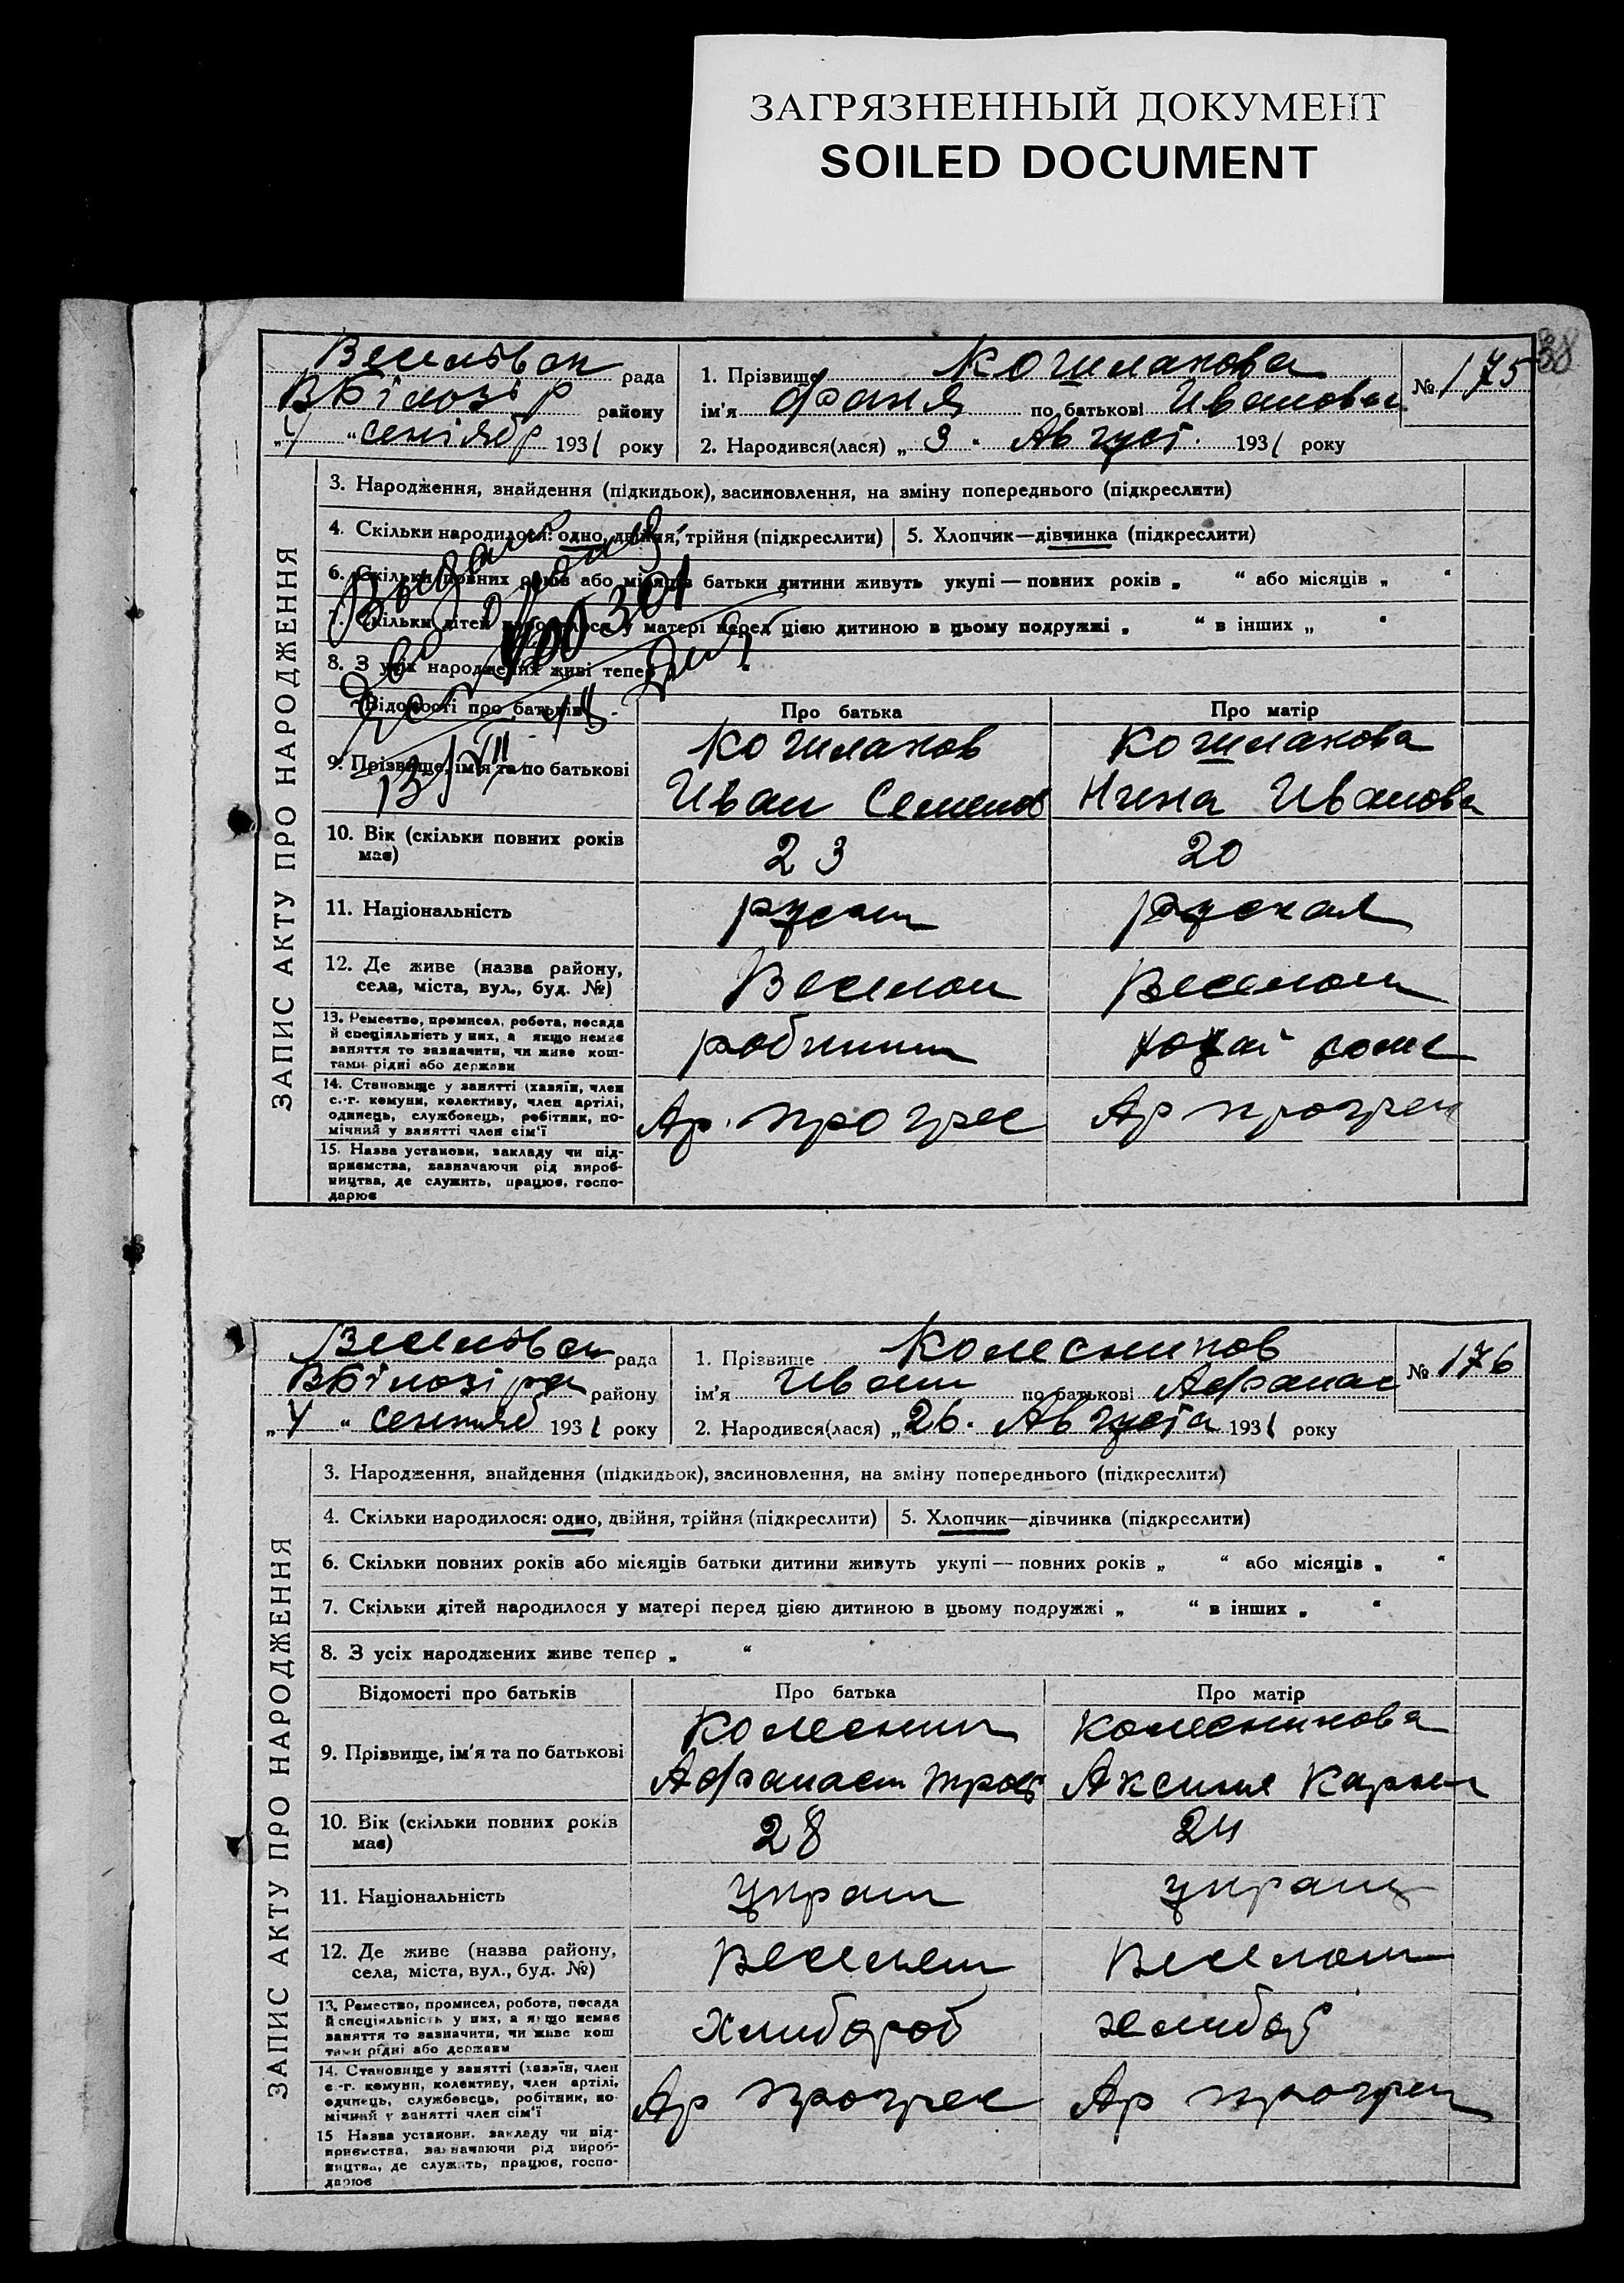 ЗАГРЯЗНЕННЫЙ ДОКУМЕНТ
SOILED DOCUMENT
38
рада
ВБілозір району
"4" сентябр 1931 року
1. Прізвище Кошлакова
ім'я Фаня по батькові Иванова
2. Народився(лася) „ 3 " Август. 1931 року
№ 175
ЗАПИС АКТУ ПРО НАРОДЖЕННЯ
3. Народження, знайдення (підкидьок), засиновлення, на зміну попереднього (підкреслити)
4. Скільки народилося: одно, двійня, трійня (підкреслити)
5. Хлопчик—дівчинка (підкреслити)
6. Скільки повних років або місяців батьки дитини живуть укупі — повних років „ “ або місяців „ “
7. Скільки дітей народилося у матері перед цією дитиною в цьому подружжі „ “ в інших „ “
8. З усіх народжених живі тепер
Відомості про батьків
Про батька
Про матір
9. Прізвище, ім'я та по батькові
Кошлаков
Иван Семенов
Кошлакова
Нина Иванова
10. Вік (скільки повних років має)
23
20
11. Національність
руская
12. Де живе (назва району, села, міста, вул., буд. №)
13. Ремество, промисел, робота, посада
й спеціяльність у них, а якщо немає
заняття то зазначити, чи живе кош-
тами рідні або держави
14. Становище у занятті (хазяїн, член
с.-г. комуни, колективу, член артілі,
одинець, службовець, робітник, по-
мічний у занятті член сім'ї
Ар. прогрес
Ар прогрес
15. Назва установи, закладу чи під-
приємства, зазначаючи рід вироб-
ництва, де служить, працює, госпо-
дарює
рада
ВБілозірка району
„4" сентяб 1931 року
1. Прізвище Колесников
ім'я Иван по батькові Афанас
2. Народився(лася) „26. Августа 1931 року
№ 176
ЗАПИС АКТУ ПРО НАРОДЖЕННЯ
3. Народження, знайдення (підкидьок), засиновлення, на зміну попереднього (підкреслити)
4. Скільки народилося: одно, двійня, трійня (підкреслити)
5. Хлопчик—дівчинка (підкреслити)
6. Скільки повних років або місяців батьки дитини живуть укупі — повних років „ “ або місяців „ “
7. Скільки дітей народилося у матері перед цією дитиною в цьому подружжі „ “ в інших „ “
8. З усіх народжених живе тепер „ “
Відомості про батьків
Про батька
Про матір
9. Прізвище, ім'я та по батькові
Колесник
Афанасий
Колесникова
Аксиня
10. Вік (скільки повних років має)
28
24
11. Національність
украин
украин
12. Де живе (назва району, села, міста, вул., буд. №)
13. Ремество, промисел, робота, посада
й спеціяльність у них, а якщо немає
заняття то зазначити, чи живе кош
тами рідні або держави
Хлибороб
14. Становище у занятті (хазяїн, член
с.-г. комуни, колективу, член артілі,
одинець, службовець, робітник, по-
мічний у занятті член сім'ї
Ар прогрес
Ар прогрес
15 Назва установи, закладу чи під-
приємства, зазначаючи рід вироб-
ництва, де служить, працює, госпо-
дарює